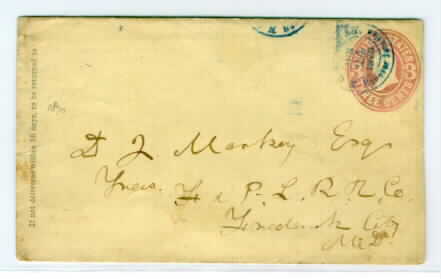 If not delivered within 10 days, to be returned to
THREE CENTS
D. J. Markey Esq.
Treas. F & P. L. R. R. Co.
Frederick City
Md.